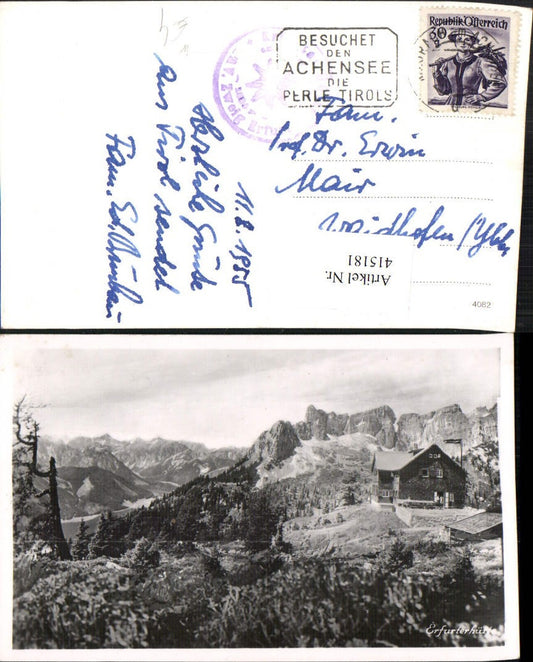 Republik Österreich
30
BESUCHET
DEN
ACHENSEE
DIE
PERLE TIROLS
Fam.
Prof. Dr. Erwin
Mair
Waidhofen/Ybbs
11.8.1955
Herzliche Grüße
aus Tirol sendet
Fam. Ed.
Artikel Nr.
415181
4082
Erfurterhütte